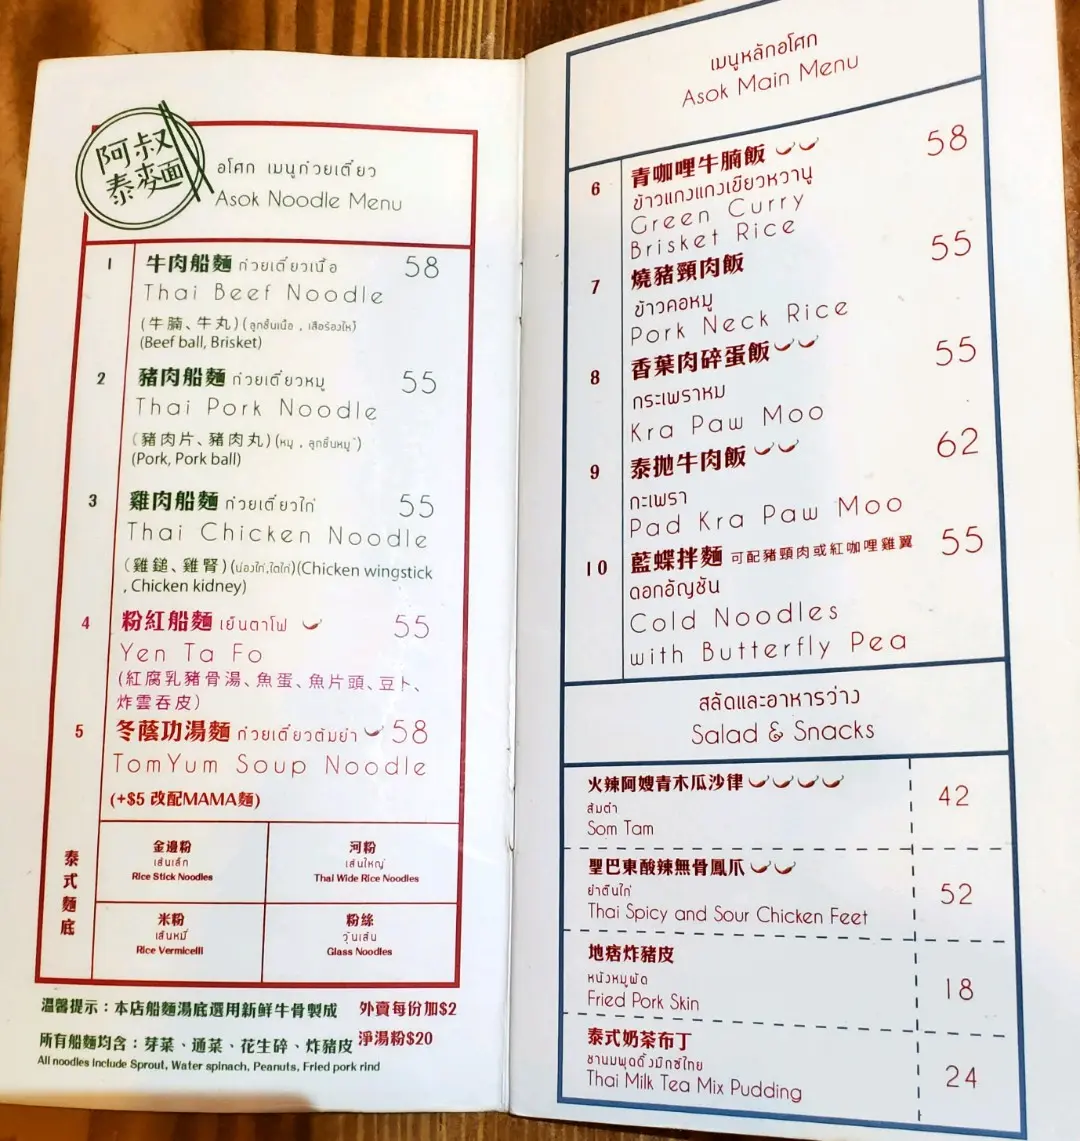 阿叔
泰麵
อโศก เมนูก๋วยเตี๋ยว
Asok Noodle Menu
1 牛肉船麵 ก๋วยเตี๋ยวเนื้อ 58
Thai Beef Noodle
(牛腩、牛丸)(ลูกชิ้นเนื้อ , เสือร้องไห้)
(Beef ball, Brisket)
2 豬肉船麵 ก๋วยเตี๋ยวหมู 55
Thai Pork Noodle
(豬肉片、豬肉丸)(หมู , ลูกชิ้นหมู)
(Pork, Pork ball)
3 雞肉船麵 ก๋วยเตี๋ยวไก่ 55
Thai Chicken Noodle
(雞鎚、雞腎)(น่องไก่,ไตไก่)(Chicken wingstick
, Chicken kidney)
4 粉紅船麵 เย็นตาโฟ 55
Yen Ta Fo
(紅腐乳豬骨湯、魚蛋、魚片頭、豆卜、
炸雲吞皮)
5 冬蔭功湯麵 ก๋วยเตี๋ยวต้มยำ 58
TomYum Soup Noodle
(+$5 改配MAMA麵)
泰式麵底
金邊粉
เส้นเล็ก
Rice Stick Noodles
河粉
เส้นใหญ่
Thai Wide Rice Noodles
米粉
เส้นหมี่
Rice Vermicelli
粉絲
วุ้นเส้น
Glass Noodles
溫馨提示：本店船麵湯底選用新鮮牛骨製成 外賣每份加$2
所有船麵均含：芽菜、通菜、花生碎、炸豬皮 淨湯粉$20
All noodles include Sprout, Water spinach, Peanuts, Fried pork rind
เมนูหลักอโศก
Asok Main Menu
6 青咖哩牛腩飯 58
ข้าวแกงแกงเขียวหวานู
Green Curry
Brisket Rice
7 燒豬頸肉飯 55
ข้าวคอหมู
Pork Neck Rice
8 香葉肉碎蛋飯 55
กระเพราหม
Kra Paw Moo
9 泰拋牛肉飯 62
กะเพรา
Pad Kra Paw Moo
10 藍蝶拌麵 可配豬頸肉或紅咖哩雞翼 55
ดอกอัญชัน
Cold Noodles
with Butterfly Pea
สลัดและอาหารว่าง
Salad & Snacks
火辣阿嫂青木瓜沙律 42
ส้มตำ
Som Tam
聖巴東酸辣無骨鳳爪 52
ยำตีนไก่
Thai Spicy and Sour Chicken Feet
地痞炸豬皮 18
หนังหมูผัด
Fried Pork Skin
泰式奶茶布丁 24
ชานมพุดดิ้งมิกซ์ไทย
Thai Milk Tea Mix Pudding